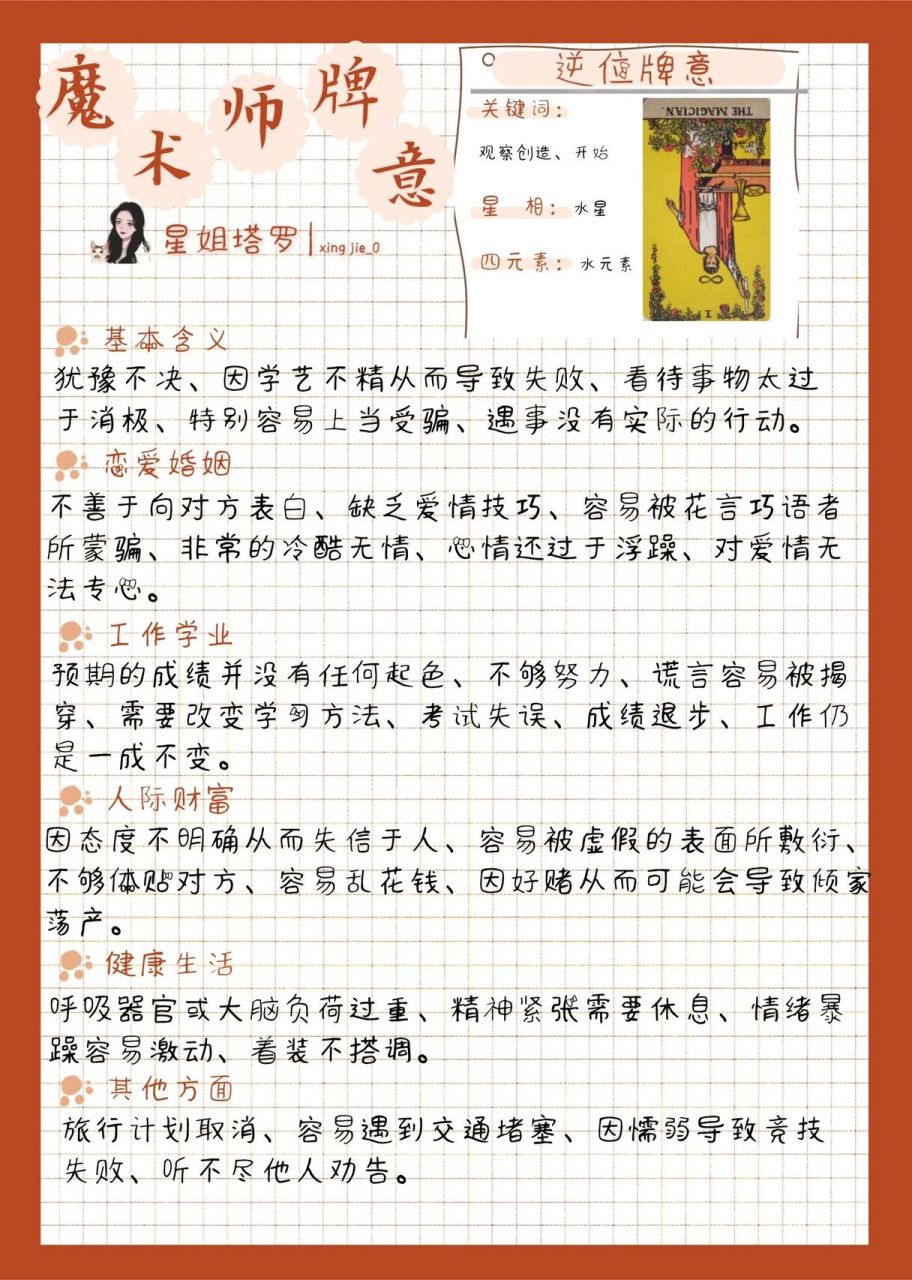 魔术师牌意
星姐塔罗|xing jie_0
逆位牌意
关键词：
观察创造、开始
星 相：水星
四元素：水元素
THE MAGICIAN.
I
基本含义
犹豫不决、因学艺不精从而导致失败、看待事物太过
于消极、特别容易上当受骗、遇事没有实际的行动。
恋爱婚姻
不善于向对方表白、缺乏爱情技巧、容易被花言巧语者
所蒙骗、非常的冷酷无情、心情还过于浮躁、对爱情无
法专心。
工作学业
预期的成绩并没有任何起色、不够努力、谎言容易被揭
穿、需要改变学习方法、考试失误、成绩退步、工作仍
是一成不变。
人际财富
因态度不明确从而失信于人、容易被虚假的表面所敷衍、
不够体贴对方、容易乱花钱、因好赌从而可能会导致倾家
荡产。
健康生活
呼吸器官或大脑负荷过重、精神紧张需要休息、情绪暴
躁容易激动、着装不搭调。
其他方面
旅行计划取消、容易遇到交通堵塞、因懦弱导致竞技
失败、听不尽他人劝告。